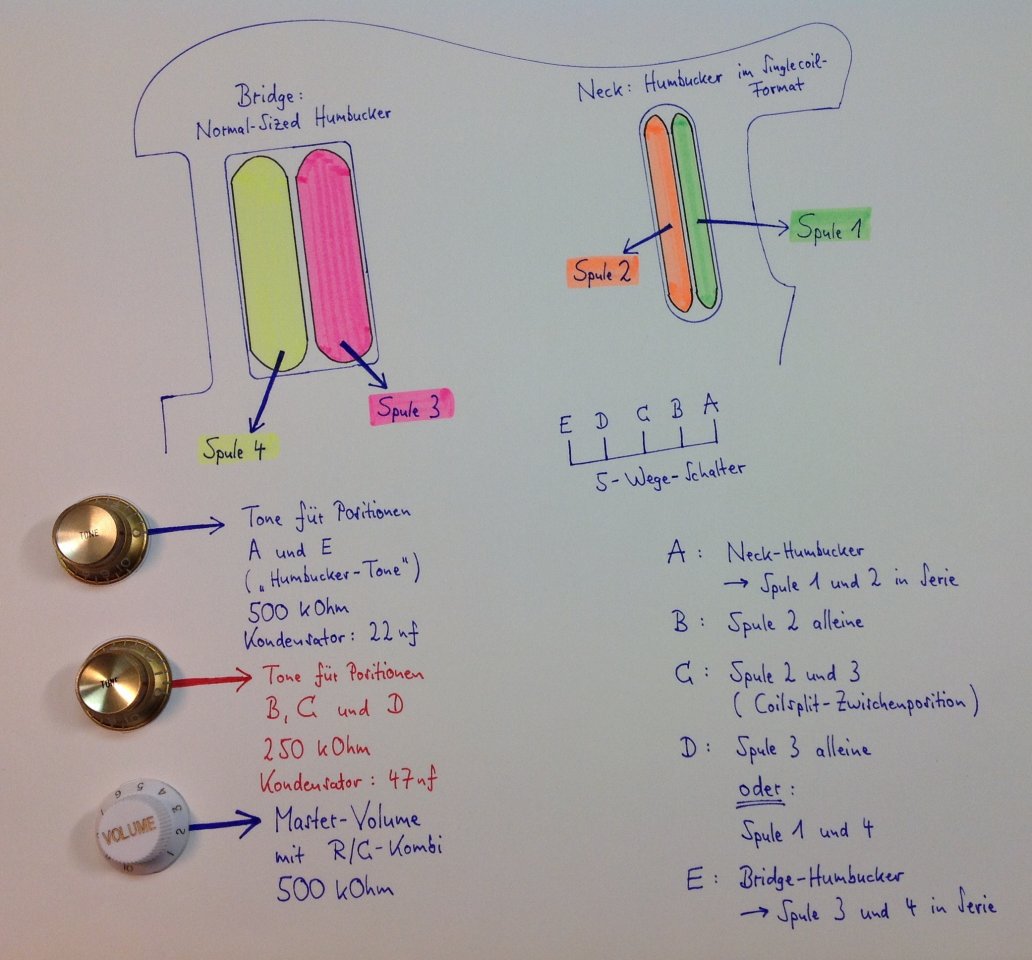 Bridge:
Normal-Sized Humbucker
Neck: Humbucker im Singlecoil-
Format
Spule 1
Spule 2
Spule 3
Spule 4
E D C B A
5-Wege-Schalter
TONE
Tone für Positionen
A und E
(„Humbucker-Tone")
500 kOhm
Kondensator: 22nf
TONE
Tone für Positionen
B, C und D
250 kOhm
Kondensator: 47nf
VOLUME
1 2 3 4 5 6
10
Master-Volume
mit R/C-Kombi
500 kOhm
A: Neck-Humbucker
→ Spule 1 und 2 in Serie
B: Spule 2 alleine
C: Spule 2 und 3
(Coilsplit-Zwischenposition)
D: Spule 3 alleine
oder:
Spule 1 und 4
E: Bridge-Humbucker
→ Spule 3 und 4 in Serie